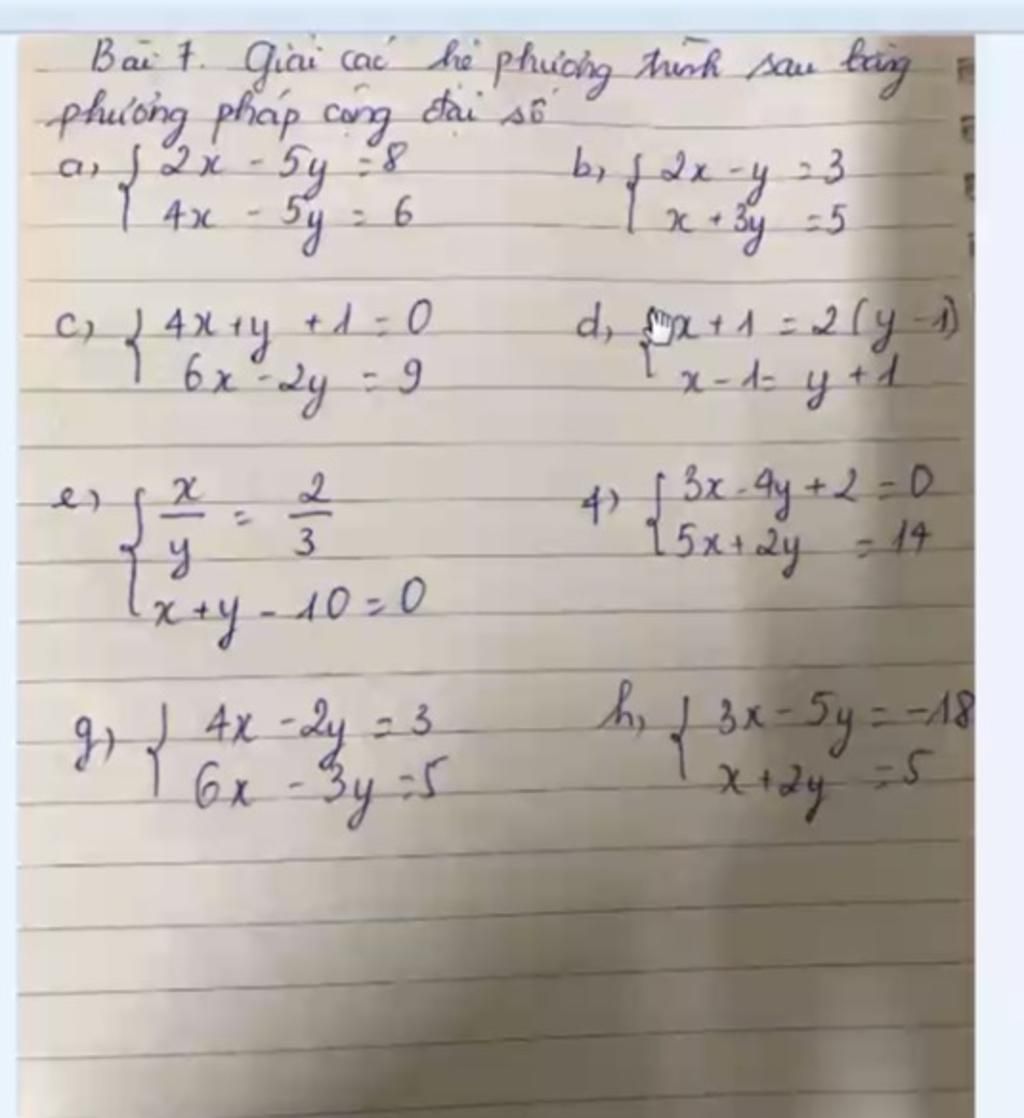 Bài 7. Giải các hệ phương trình sau bằng
phương pháp cộng đại số
a, { 2x - 5y = 8
4x - 5y = 6
b, { 2x - y = 3
x + 3y = 5
c, { 4x + y + 1 = 0
6x - 2y = 9
d, { x + 1 = 2(y - 1)
x - 1 = y + 1
e) { x/y = 2/3
x + y - 10 = 0
f) { 3x - 4y + 2 = 0
5x + 2y = 14
g) { 4x - 2y = 3
6x - 3y = 5
h, { 3x - 5y = -18
x + 2y = 5